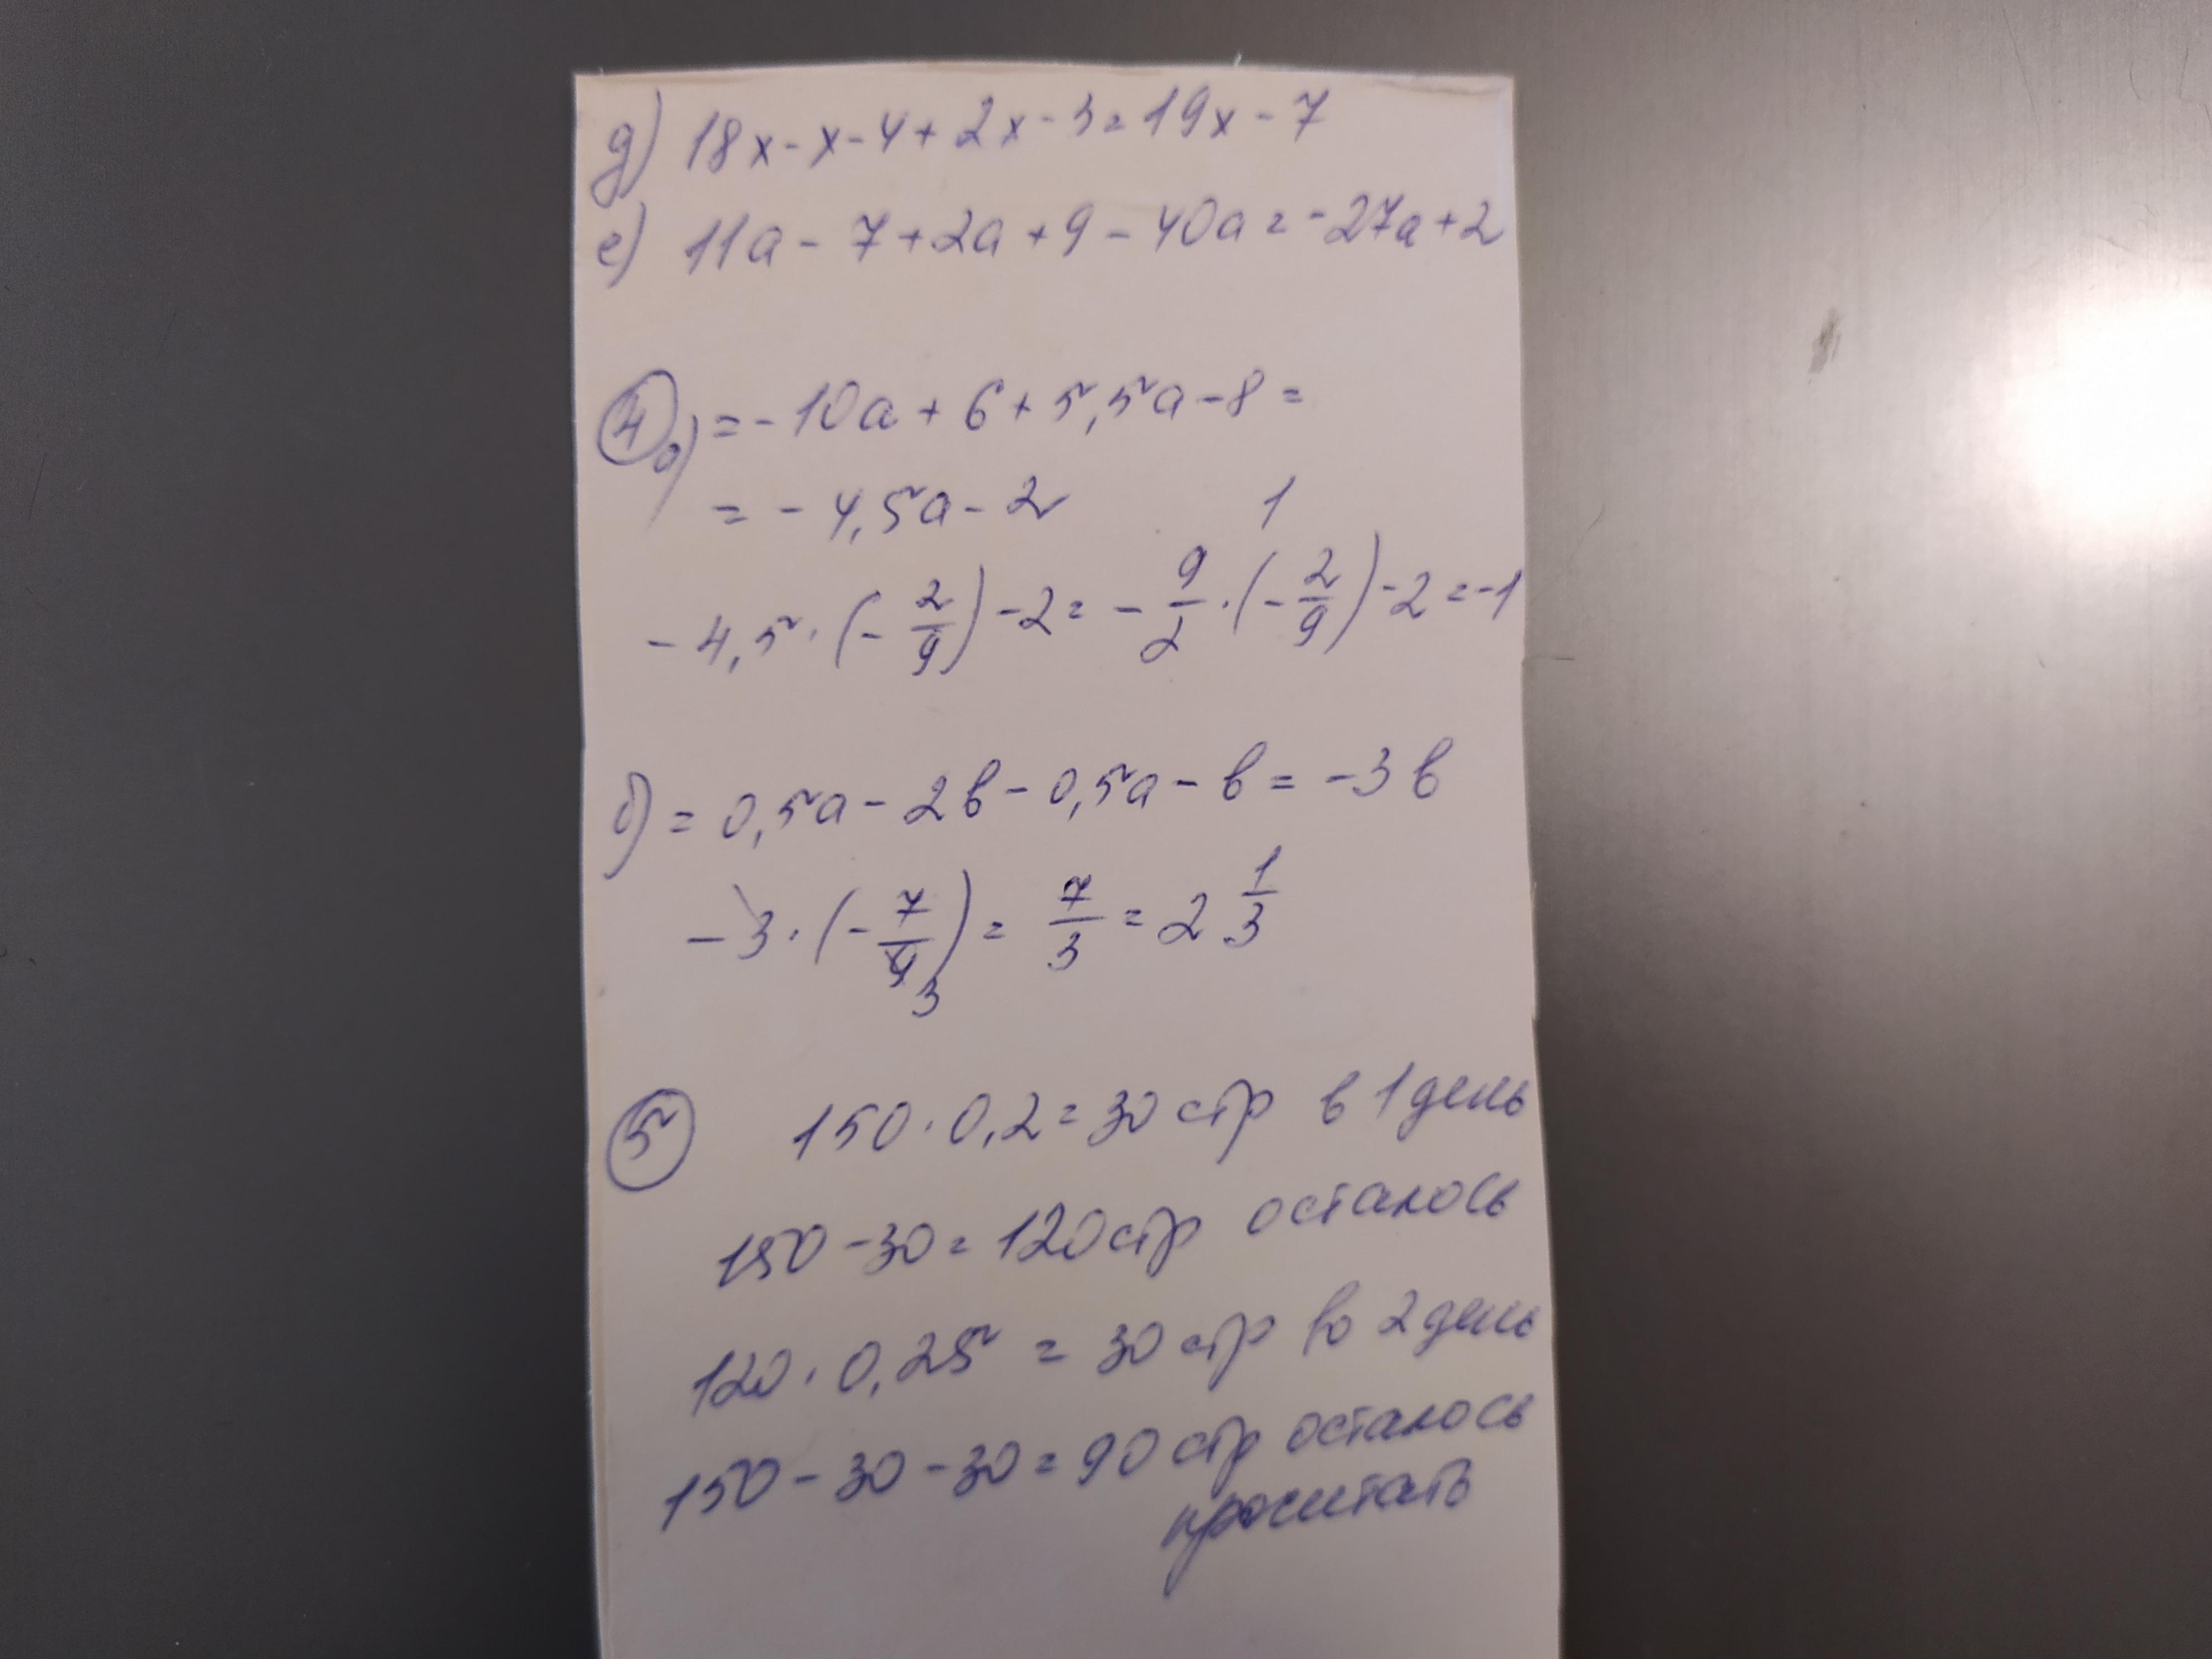 д) 18x - x - 4 + 2x - 3 = 19x - 7
е) 11a - 7 + 2a + 9 - 40a = -27a + 2
4 а) = -10a + 6 + 5,5a - 8 =
= -4,5a - 2
1
-4,5 · (-2/9) - 2 = -9/2 · (-2/9) - 2 = -1
б) = 0,5a - 2b - 0,5a - b = -3b
-3 · (-7/9) = 7/3 = 2 1/3
3
5 150 · 0,2 = 30 стр в 1 день
150 - 30 = 120 стр осталось
120 · 0,25 = 30 стр во 2 день
150 - 30 - 30 = 90 стр осталось
прочитать